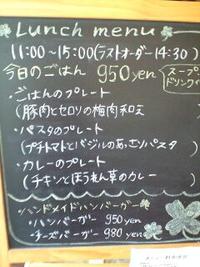 Lunch menu
11:00～15:00(ラストオーダー14:30)
今日のごはん 950yen
スープ
ドリンク
・ごはんのプレート
(豚肉とセロリの梅肉和え
・パスタのプレート
(プチトマトとバジルのあっさりパスタ
・カレーのプレート
(チキンとほうれん草のカレー
ハンドメイドハンバーガー
・ハンバーガー 950yen
・チーズバーガー 980yen